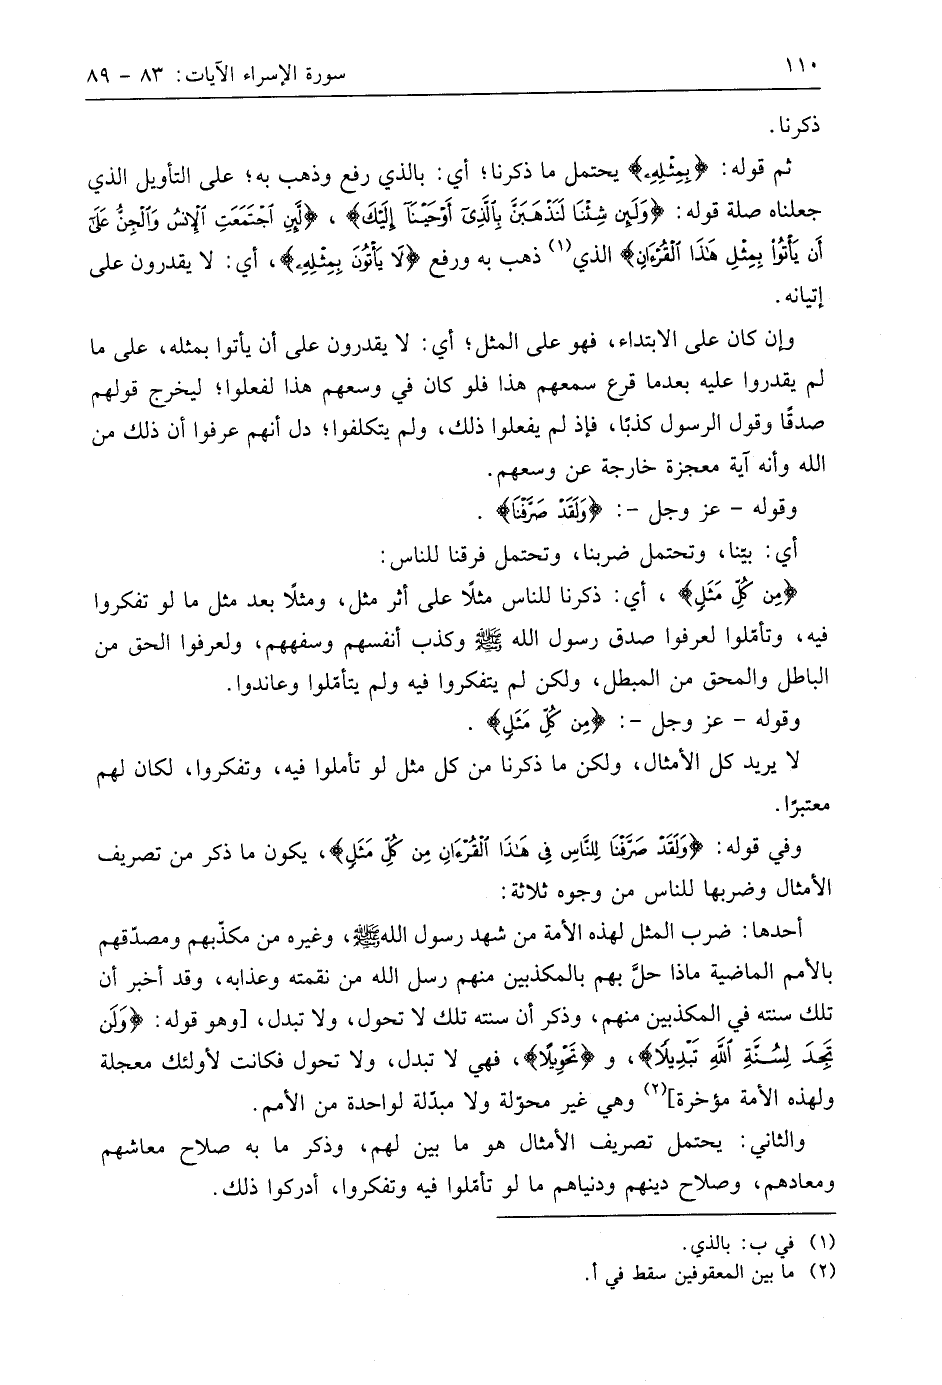 ١١٠
سورة الإسراء الآيات: ٨٣ - ٨٩
ذكرنا.
ثم قوله: ﴿بِمِثْلِهِۦ﴾ يحتمل ما ذكرنا؛ أي: بالذي رفع وذهب به؛ على التأويل الذي
جعلناه صلة قوله: ﴿وَلَئِن شِئْنَا لَنَذْهَبَنَّ بِٱلَّذِىٓ أَوْحَيْنَآ إِلَيْكَ﴾ ، ﴿لَّئِنِ ٱجْتَمَعَتِ ٱلْإِنسُ وَٱلْجِنُّ عَلَىٰٓ
أَن يَأْتُوا۟ بِمِثْلِ هَٰذَا ٱلْقُرْءَانِ﴾ الذي(١) ذهب به ورفع ﴿لَا يَأْتُونَ بِمِثْلِهِۦ﴾، أي: لا يقدرون على
إتيانه.
وإن كان على الابتداء، فهو على المثل؛ أي: لا يقدرون على أن يأتوا بمثله، على ما
لم يقدروا عليه بعدما قرع سمعهم هذا فلو كان في وسعهم هذا لفعلوا؛ ليخرج قولهم
صدقًا وقول الرسول كذبًا، فإذ لم يفعلوا ذلك، ولم يتكلفوا؛ دل أنهم عرفوا أن ذلك من
الله وأنه آية معجزة خارجة عن وسعهم.
وقوله - عز وجل -: ﴿وَلَقَدْ صَرَّفْنَا﴾ .
أي: بيّنا، وتحتمل ضربنا، وتحتمل فرقنا للناس:
﴿مِن كُلِّ مَثَلٍ﴾ ، أي: ذكرنا للناس مثلًا على أثر مثل، ومثلًا بعد مثل ما لو تفكروا
فيه، وتأمّلوا لعرفوا صدق رسول الله ﷺ وكذب أنفسهم وسفههم، ولعرفوا الحق من
الباطل والمحق من المبطل، ولكن لم يتفكروا فيه ولم يتأمّلوا وعاندوا.
وقوله - عز وجل -: ﴿مِن كُلِّ مَثَلٍ﴾ .
لا يريد كل الأمثال، ولكن ما ذكرنا من كل مثل لو تأملوا فيه، وتفكروا، لكان لهم
معتبرًا.
وفي قوله: ﴿وَلَقَدْ صَرَّفْنَا لِلنَّاسِ فِى هَٰذَا ٱلْقُرْءَانِ مِن كُلِّ مَثَلٍ﴾، يكون ما ذكر من تصريف
الأمثال وضربها للناس من وجوه ثلاثة:
أحدها: ضرب المثل لهذه الأمة من شهد رسول الله ﷺ، وغيره من مكذّبهم ومصدّقهم
بالأمم الماضية ماذا حلَّ بهم بالمكذبين منهم رسل الله من نقمته وعذابه، وقد أخبر أن
تلك سنته في المكذبين منهم، وذكر أن سنته تلك لا تحول، ولا تبدل، [وهو قوله: ﴿وَلَن
تَجِدَ لِسُنَّةِ ٱللَّهِ تَبْدِيلًا﴾، و ﴿تَحْوِيلًا﴾، فهي لا تبدل، ولا تحول فكانت لأولئك معجلة
ولهذه الأمة مؤخرة](٢) وهي غير محوّلة ولا مبدّلة لواحدة من الأمم.
والثاني: يحتمل تصريف الأمثال هو ما بين لهم، وذكر ما به صلاح معاشهم
ومعادهم، وصلاح دينهم ودنياهم ما لو تأمّلوا فيه وتفكروا، أدركوا ذلك.
(١) في ب: بالذي.
(٢) ما بين المعقوفين سقط في أ.